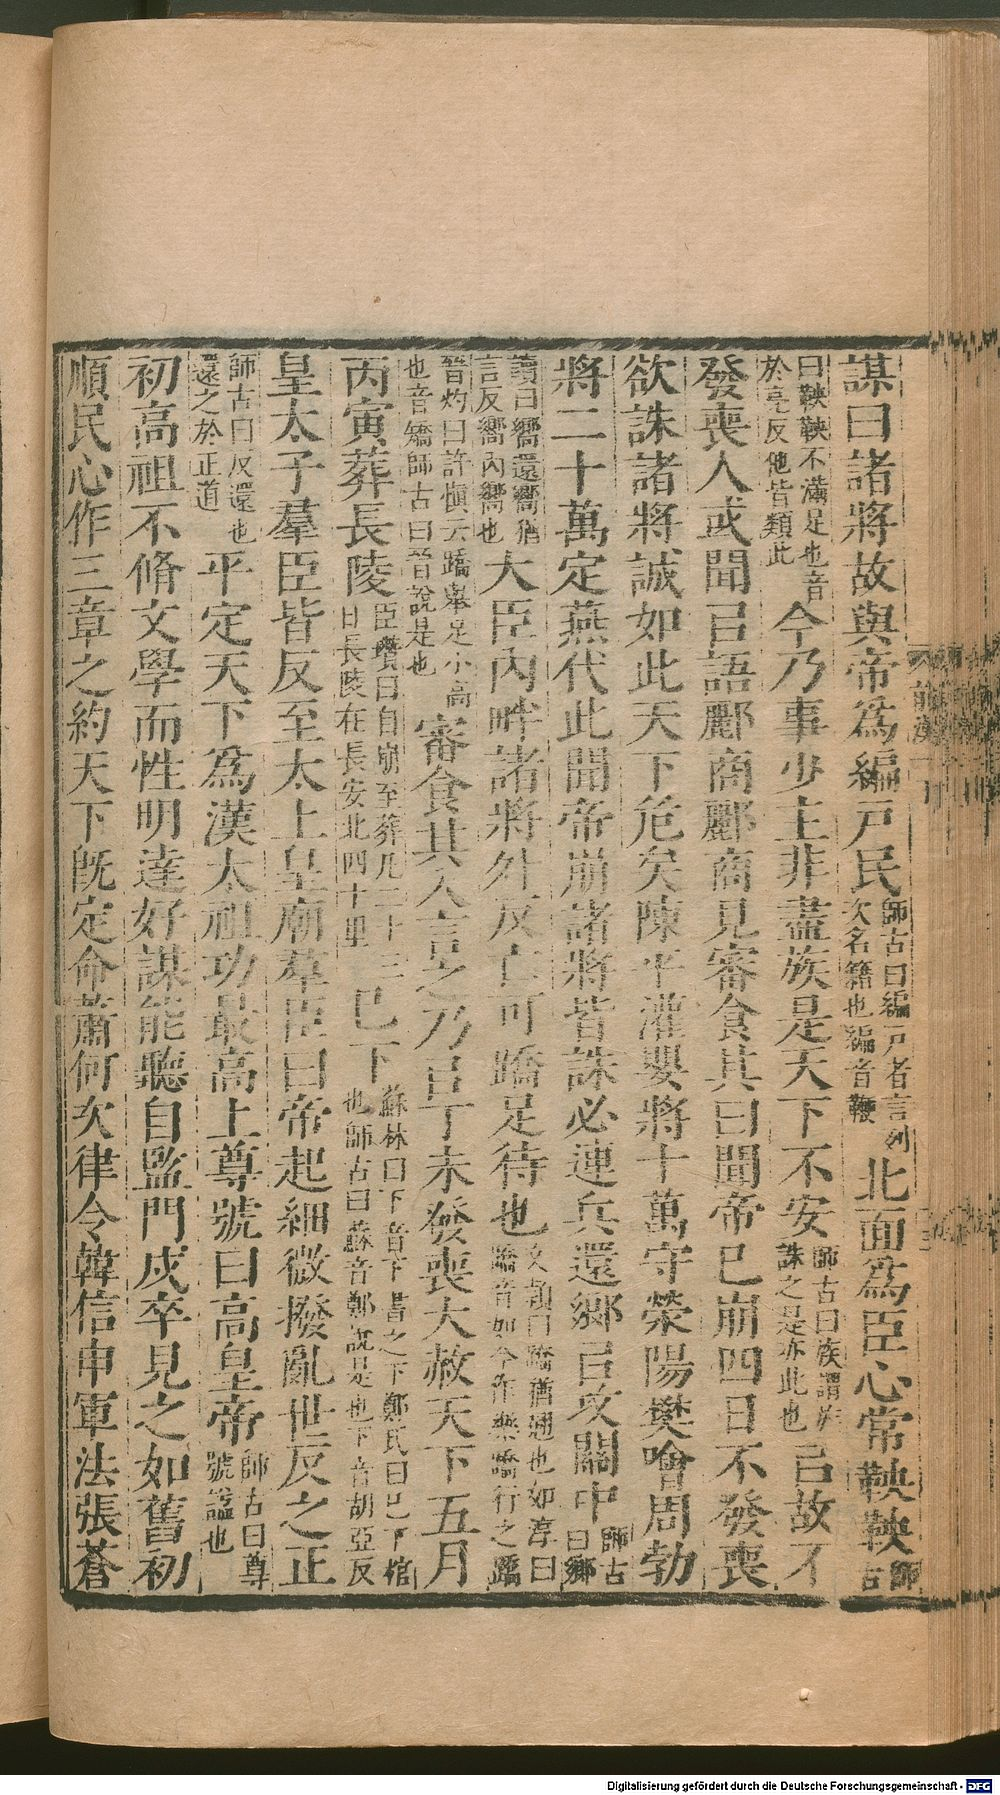 謀曰諸將故與帝爲編戸民師古曰編戸者言列次名籍也編音鞭北面爲臣心常鞅鞅師古
曰鞅鞅不滿足也音於亮反他皆類此今乃事少主非盡族是天下不安師古曰族謂族誅之是亦此也㠯故不
發喪人或聞㠯語酈商酈商見審食其曰聞帝已崩四日不發喪
欲誅諸將誠如此天下危矣陳平灌嬰將十萬守滎陽樊噲周勃
將二十萬定燕代此聞帝崩諸將皆誅必連兵還鄉㠯攻關中師古曰鄉
讀曰嚮還嚮猶言反嚮内嚮也大臣内畔諸將外反亡可蹻足待也文穎曰蹻猶翹也如淳曰蹻音如今作樂蹻行之蹻
晉灼曰許愼云蹻舉足小高也音矯師古曰晉說是也審食其入言之乃㠯丁未發喪大赦天下五月
丙寅葬長陵臣瓚曰自崩至葬凡二十三日長陵在長安北四十里已下蘇林曰下音下書之下鄭氏曰已下棺也師古曰蘇音鄭說是也下音胡亞反
皇太子羣臣皆反至太上皇廟羣臣曰帝起細微撥亂世反之正
師古曰反還也還之於正道平定天下爲漢太祖功最高上尊號曰高皇帝師古曰尊號謚也
初高祖不脩文學而性明達好謀能聽自監門戍卒見之如舊初
順民心作三章之約天下旣定命蕭何次律令韓信申軍法張蒼
前漢一下
Digitalisierung gefördert durch die Deutsche Forschungsgemeinschaft - DFG